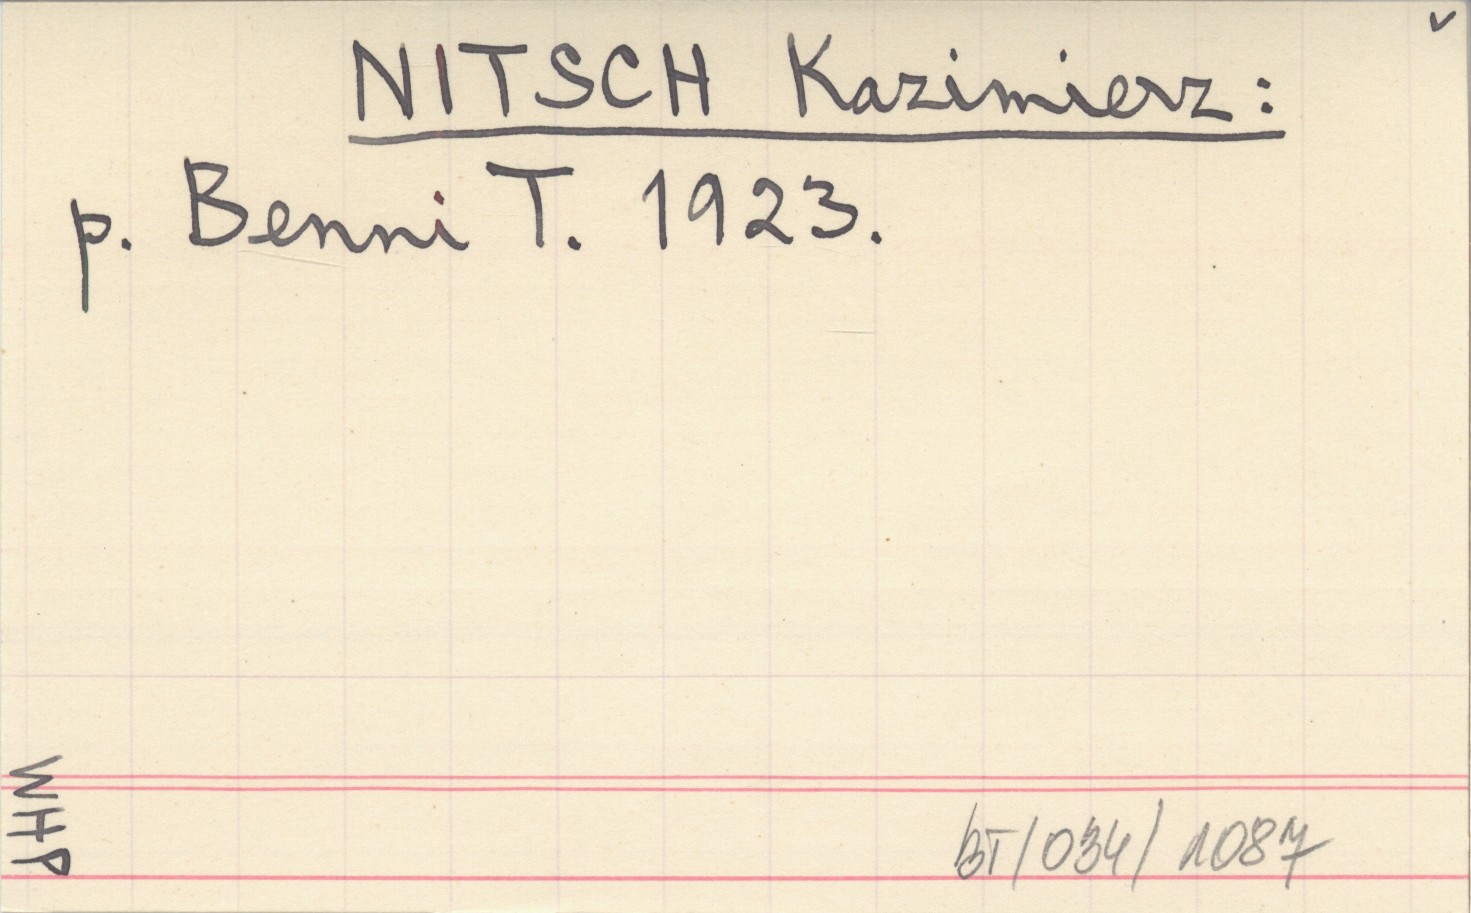 v
NITSCH Kazimierz:
p. Benni T. 1923.
WHP
BT/034/1087